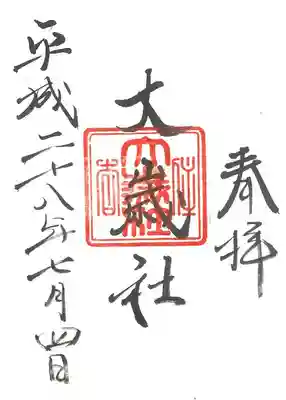 奉拝
大歳社
平成二十八年七月四日